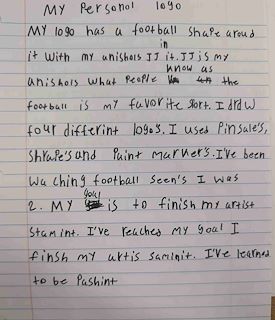 My Personol logo
MY logo has a football shape aroud
in
it with my anishols JJ it. JJ is my
know as
anishols what people the
football is my favorite sport. I drow
four differint logo's. I used Pinsale's,
shrape's and Paint marker's. I've been
waching football seen's I was
2. MY goal is to finish my artist
stamint. I've reached my goal I
finsh my artis saminit. I've learned
to be Pashint